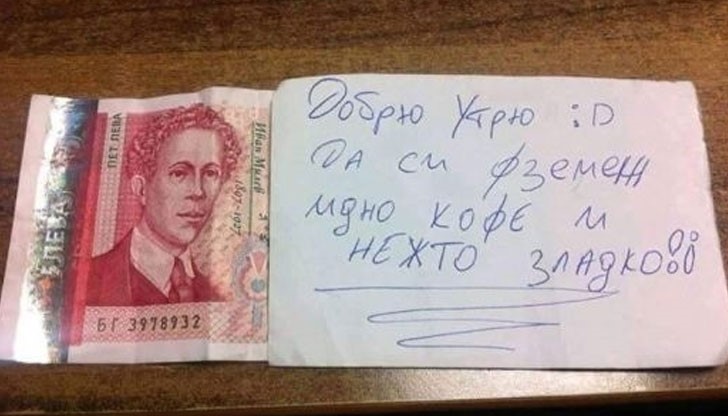 ПЕТ ЛЕВА
5 ЛЕВА
Иван Милев
1897-1927
БГ 3978932
Добрю Утрю :D
ДА си фземеж
идно кофе и
НЕЖТО зладко!!